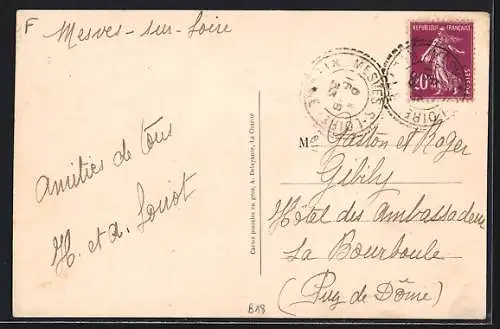 F
Mesves-sur-Loire
REPUBLIQUE FRANÇAISE
POSTES
20c
MESVES S. LOIRE
M Gaston et Roger
Gibily
Hôtel des Ambassadeurs
La Bourboule
(Puy de Dôme)
Amitiés de tous
H. et A. Loriot
Cartes postales en gros, A. Delayance, La Charité
B18